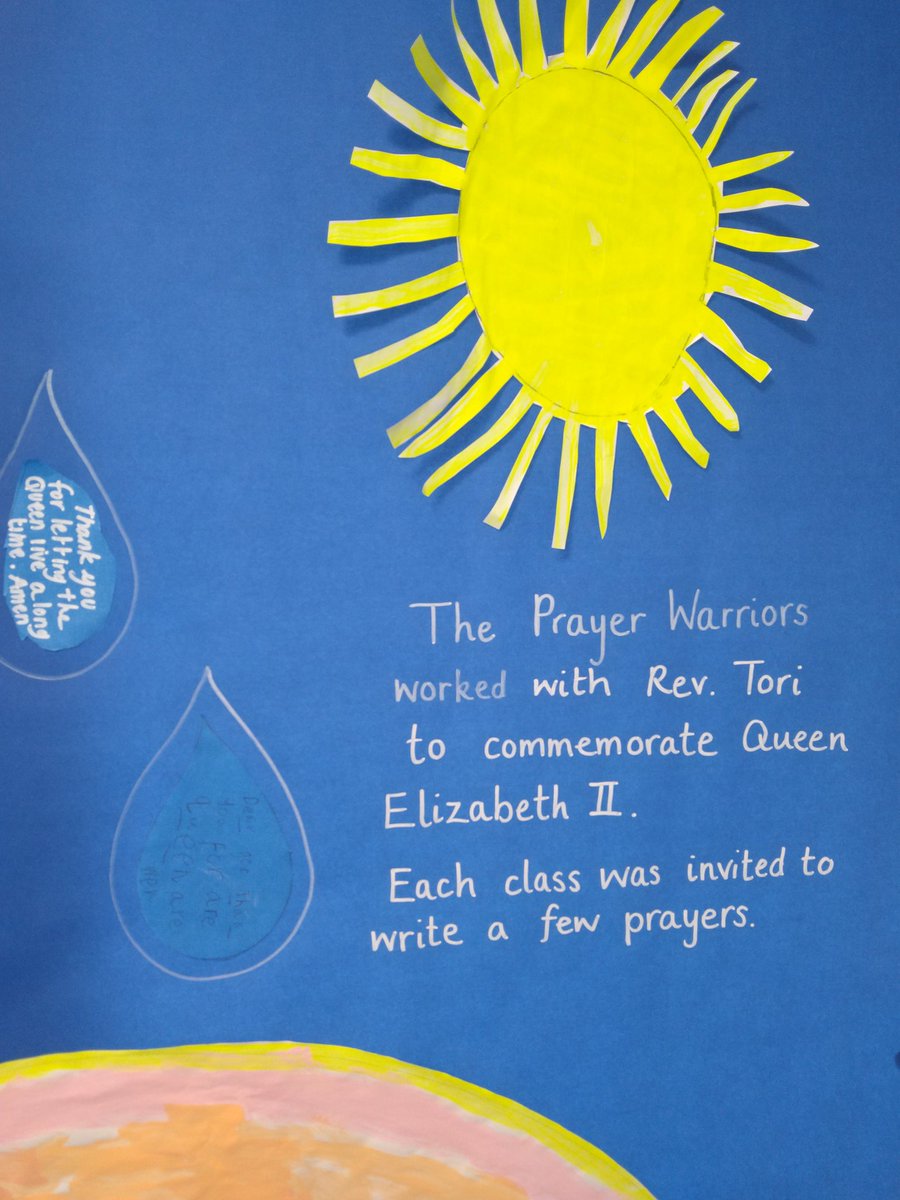 Thank you
for letting the
Queen live a long
time. Amen
The Prayer Warriors
worked with Rev. Tori
to commemorate Queen
Elizabeth II.
Each class was invited to
write a few prayers.
Dear